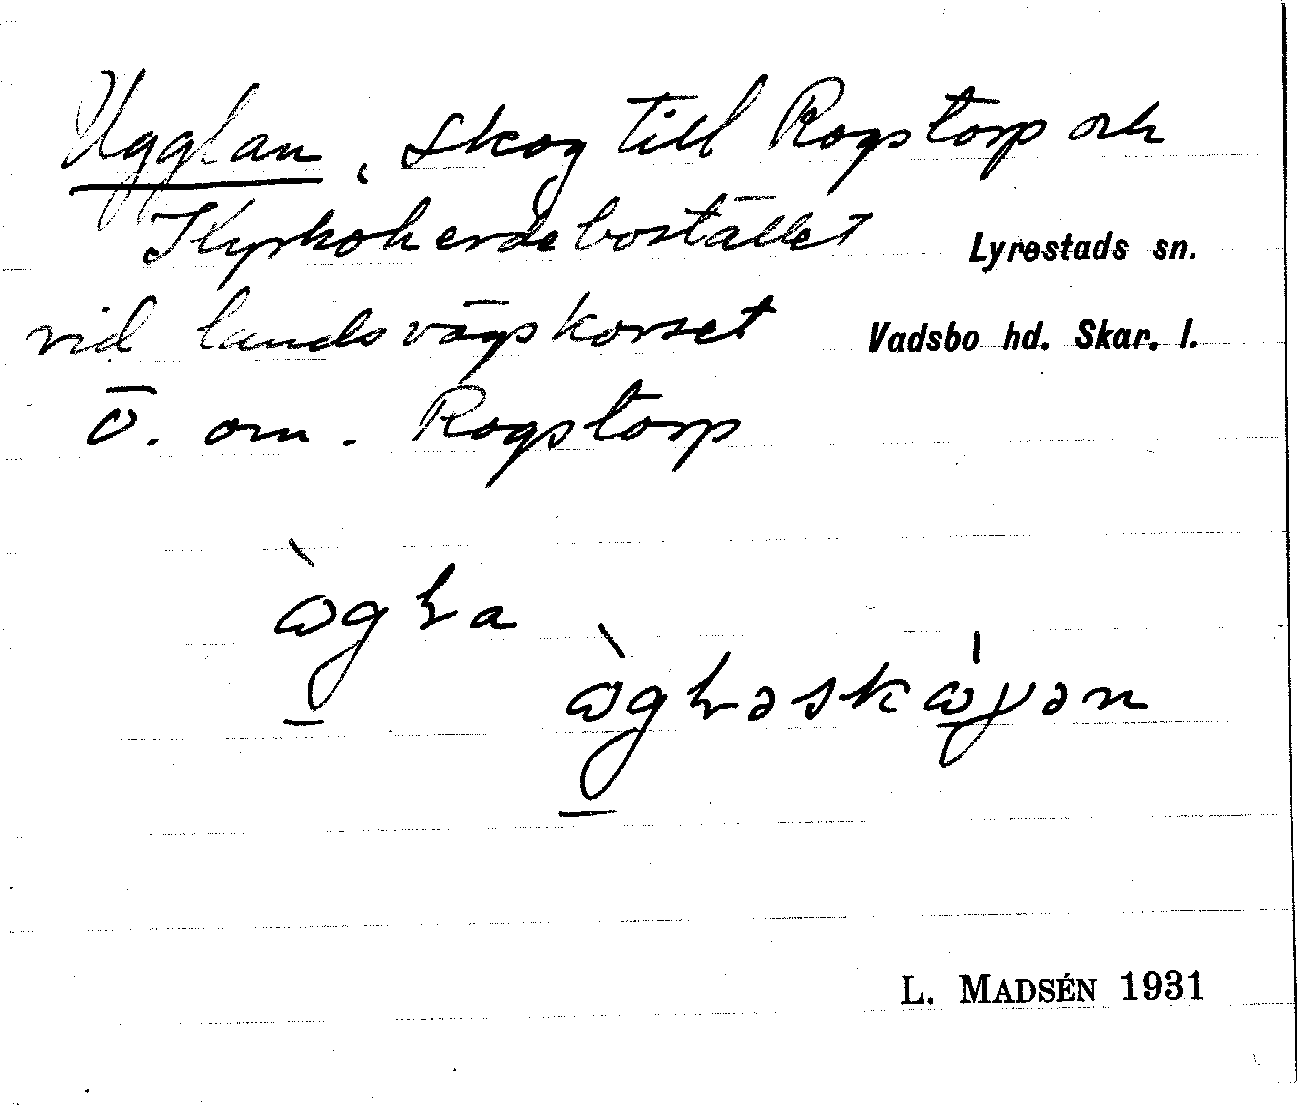 Ugglan, skog till Rogstorp och
Kyrkoherdebostället Lyrestads sn.
vid landsvägskorset Vadsbo hd. Skar. l.
ö. om. Rogstorp
L. MADSÉN 1931